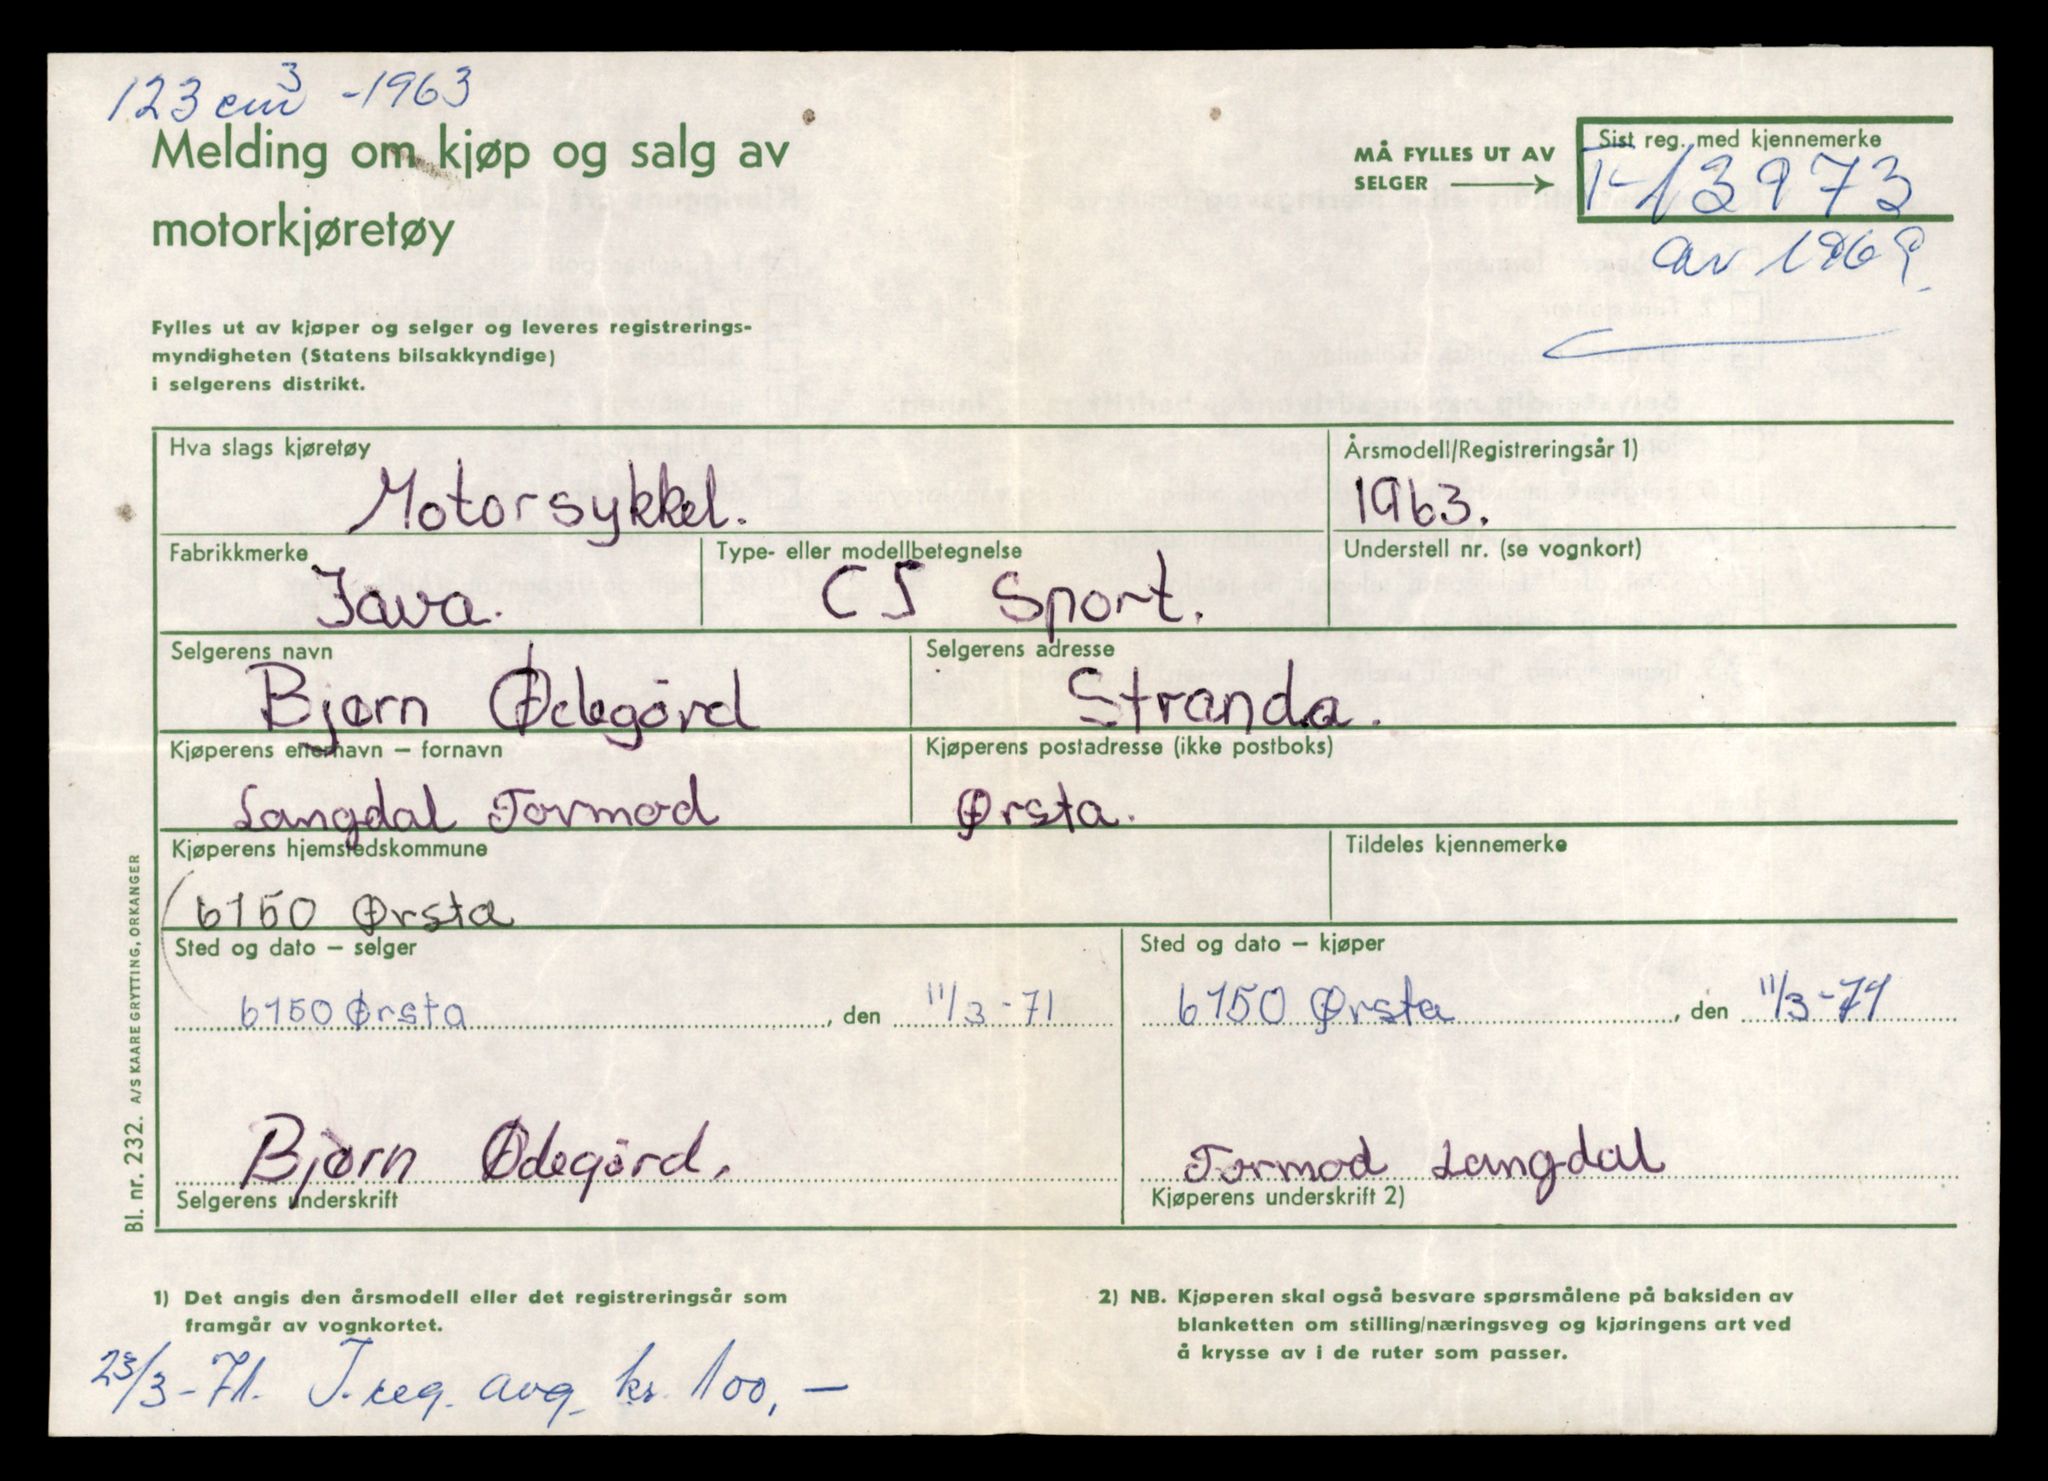 123 cm³ - 1963
Melding om kjøp og salg av
motorkjøretøy
MÅ FYLLES UT AV
SELGER
Sist reg. med kjennemerke
T-13973
av 1969
Fylles ut av kjøper og selger og leveres registrerings-
myndigheten (Statens bilsakkyndige)
i selgerens distrikt.
Hva slags kjøretøy
Motorsykkel.
Årsmodell/Registreringsår 1)
1963.
Fabrikkmerke
Java.
Type- eller modellbetegnelse
CS Sport.
Understell nr. (se vognkort)
Selgerens navn
Bjørn Ødegård
Selgerens adresse
Stranda.
Kjøperens etternavn – fornavn
Langdal Tormod
Kjøperens postadresse (ikke postboks)
Ørsta.
Kjøperens hjemstedskommune
6150 Ørsta
Tildeles kjennemerke
Sted og dato – selger
6150 Ørsta , den 11/3-71
Sted og dato – kjøper
6150 Ørsta , den 11/3-71
Bjørn Ødegård.
Selgerens underskrift
Tormod Langdal
Kjøperens underskrift 2)
Bl. nr. 232. A/S KAARE GRYTTING, ORKANGER
1) Det angis den årsmodell eller det registreringsår som
framgår av vognkortet.
2) NB. Kjøperen skal også besvare spørsmålene på baksiden av
blanketten om stilling/næringsveg og kjøringens art ved
å krysse av i de ruter som passer.
23/3-71. I. reg. avg. kr. 100,-